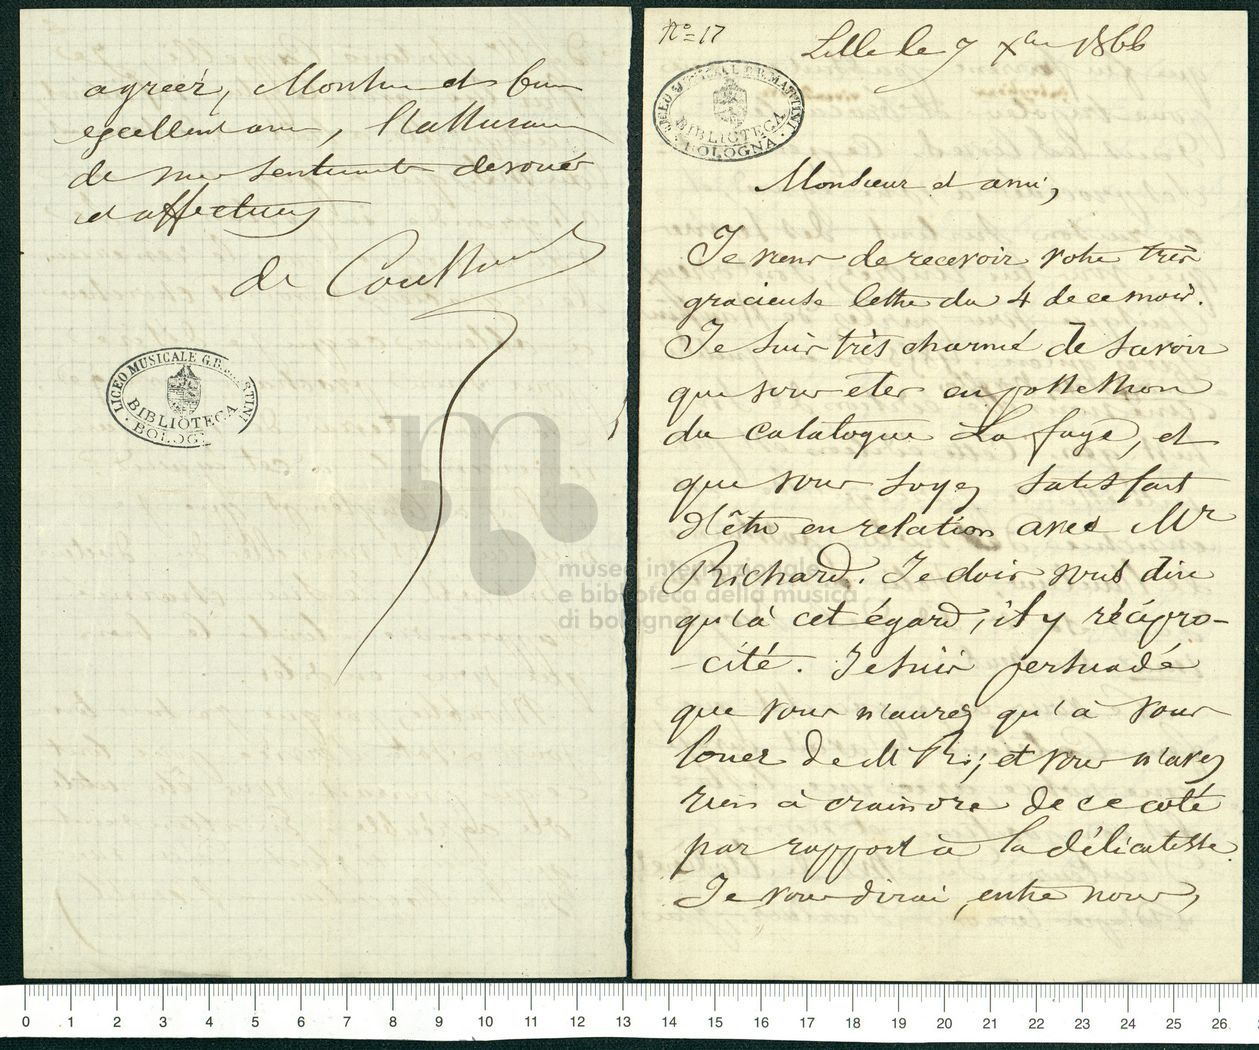 agréer, Monsieur et bon
excellent ami, l'assurance
de mes sentiments dévoués
et affectueux
de Coussemaker
LICEO MUSICALE G.B. MARTINI
BIBLIOTECA
BOLOGNA
No 17
Lille le 7 Xbre 1866
LICEO MUSICALE G.B. MARTINI
BIBLIOTECA
BOLOGNA
Monsieur et ami,
Je viens de recevoir votre très
gracieuse lettre du 4 de ce mois.
Je suis très charmé de savoir
que vous êtes en possession
du catalogue La fage, et
que vous soyez satisfait
d'être en relation avec Mr
Richard. Je dois vous dire
qu'à cet égard, il y réçipro-
-cité. Je suis persuadé
que vous n'aurez qu'à vous
louer de M Ri; et vous n'avez
rien à craindre de ce coté
par rapport à la délicatesse.
Je vous dirai, entre nous,
museo internazionale
e biblioteca della musica
di bologna
0 1 2 3 4 5 6 7 8 9 10 11 12 13 14 15 16 17 18 19 20 21 22 23 24 25 26